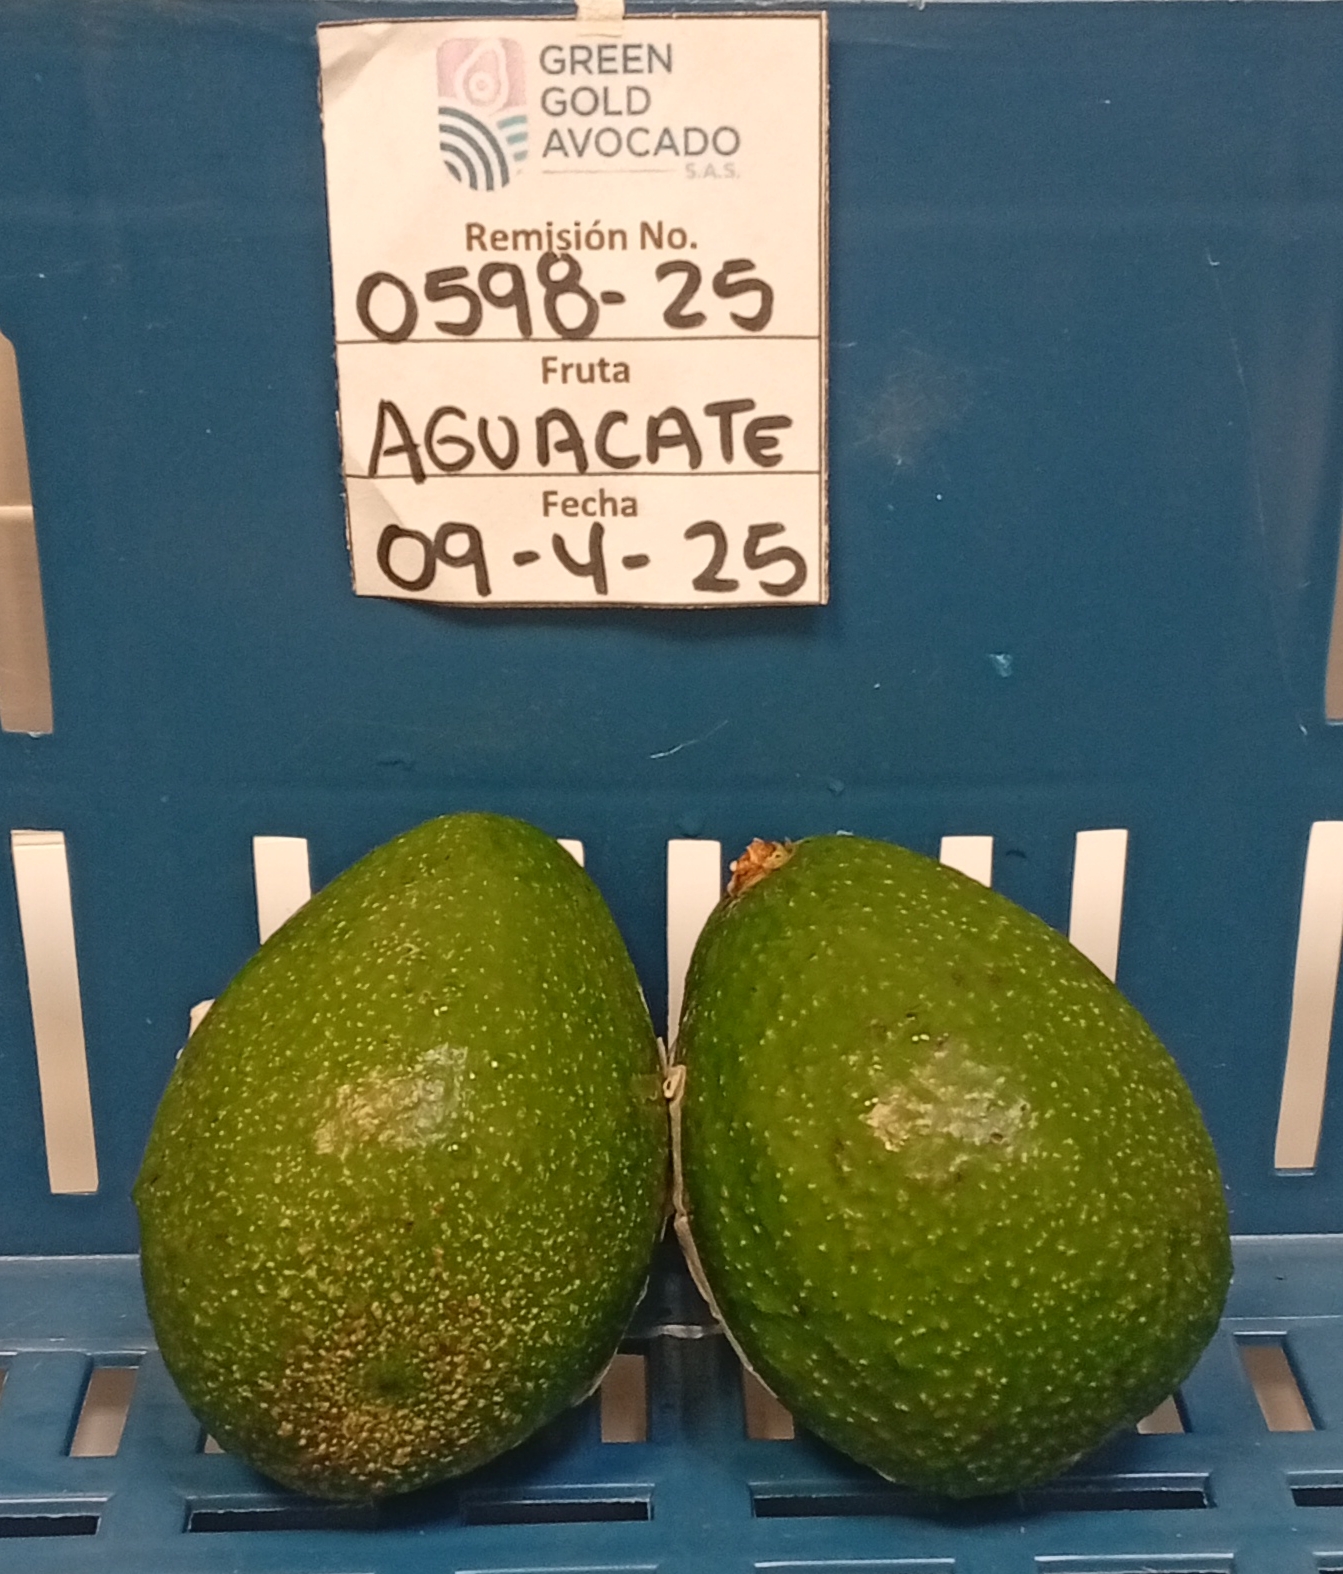 GREEN
GOLD
AVOCADO
S.A.S.
Remisión No.
0598-25
Fruta
AGUACATE
Fecha
09-4-25